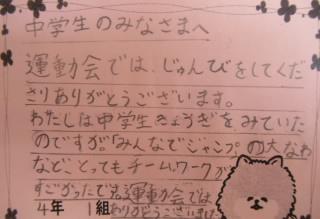 中学生のみなさまへ
運動会では、じゅんびをしてくだ
さりありがとうございます。
わたしは中学生きょうぎをみていた
のですが「みんなでジャンプ」の大なわ
などことってもチームワークが
すごかったです。運動会では
4年 1組 ありがとうございました